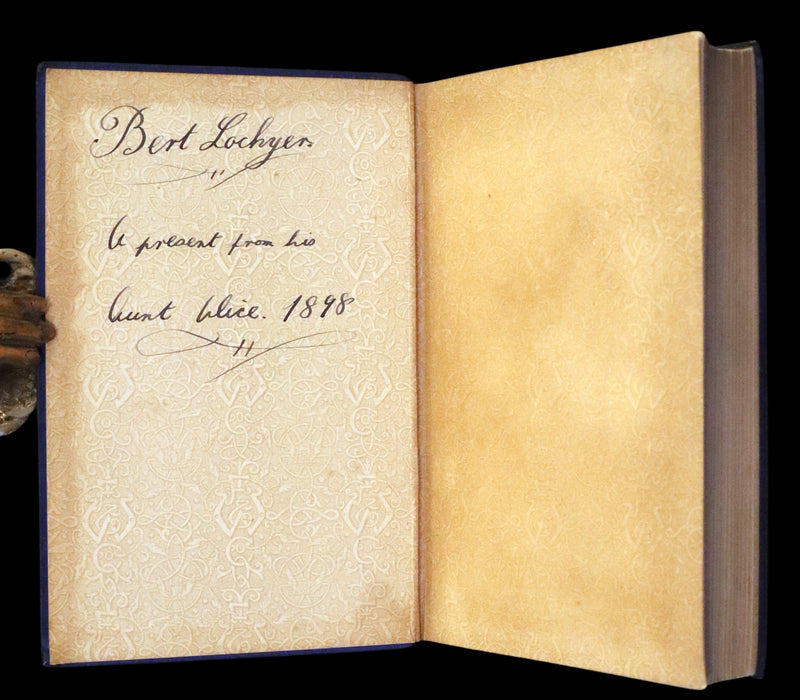 Bert Lochyer.
A present from his
Aunt Alice. 1898